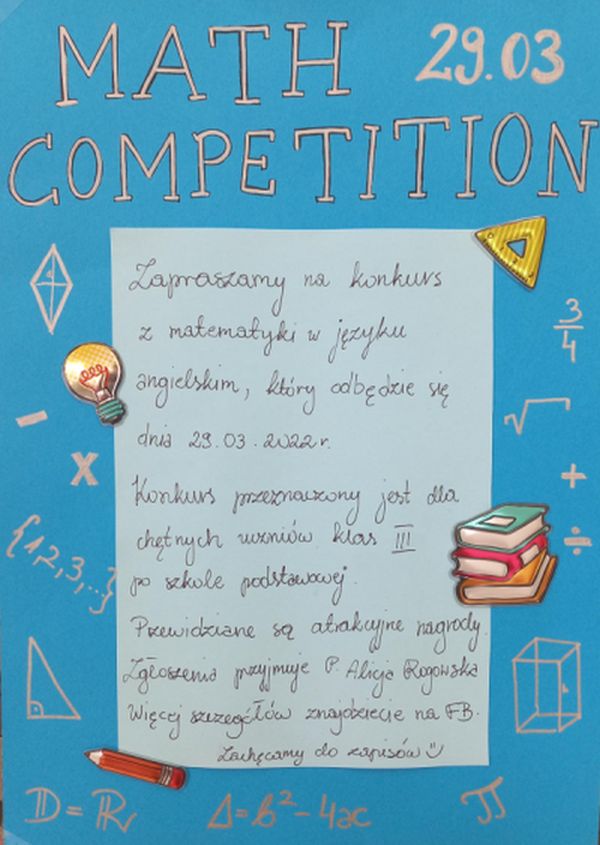 MATH 29.03
COMPETITION
Zapraszamy na konkurs
z matematyki w języku
angielskim, który odbędzie się
dnia 29.03.2022r.
Konkurs przeznaczony jest dla
chętnych uczniów klas III
po szkole podstawowej.
Przewidziane są atrakcyjne nagrody.
Zgłoszenia przyjmuje P. Alicja Rogowska
Więcej szczegółów znajdziecie na FB.
Zachęcamy do zapisów
3/4
√
-
x
+
÷
{1,2,3,...}
D=R
Δ=b²-4ac
π